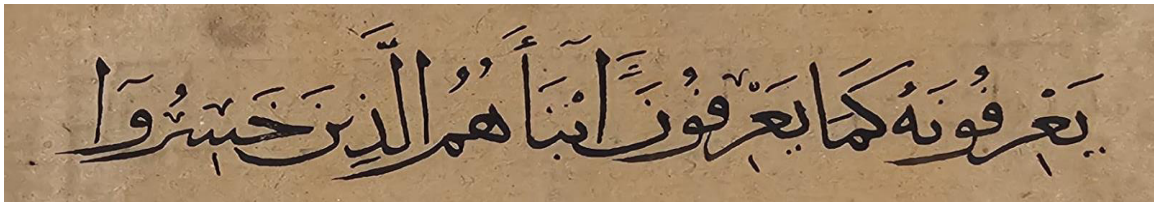 يَعْرِفُونَهُ كَمَا يَعْرِفُونَ أَبْنَاءَهُمُ الَّذِينَ خَسِرُوا